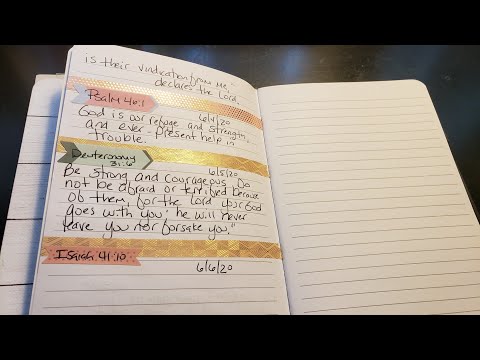 is their vindication from me,"
declares the Lord.
Psalm 46:1
6/4/20
God is our refuge and strength,
and ever-present help in
trouble.
Deuteronomy
31:6
6/5/20
Be strong and courageous. Do
not be afraid or terrified because
of them, for the Lord your God
goes with you; he will never
leave you nor forsake you."
Isaiah 41:10
6/6/20